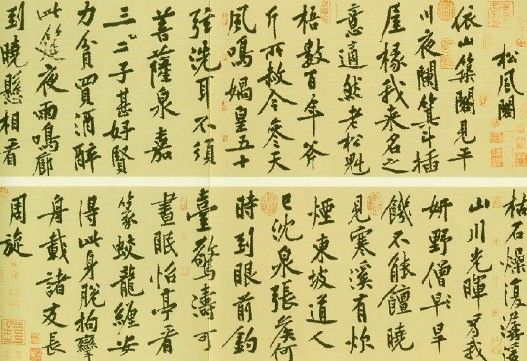 松風閣
依山築閣見平
川夜闌箕斗插
屋椽我来名之
意適然老松魁
梧數百年斧
斤所赦今參天
風鳴媧皇五十
弦洗耳不須
菩薩泉嘉
三二子甚好賢
力貧買酒醉
此筵夜雨鳴廊
到曉懸相看
枯石燥復潺湲
山川光暉為我
妍野僧早旱
饑不能饘曉
見寒溪有炊
煙東坡道人
已沈泉張侯何
時到眼前釣
臺驚濤可
晝眠怡亭看
篆蛟龍纏安
得此身脫拘攣
舟載諸友長
周旋